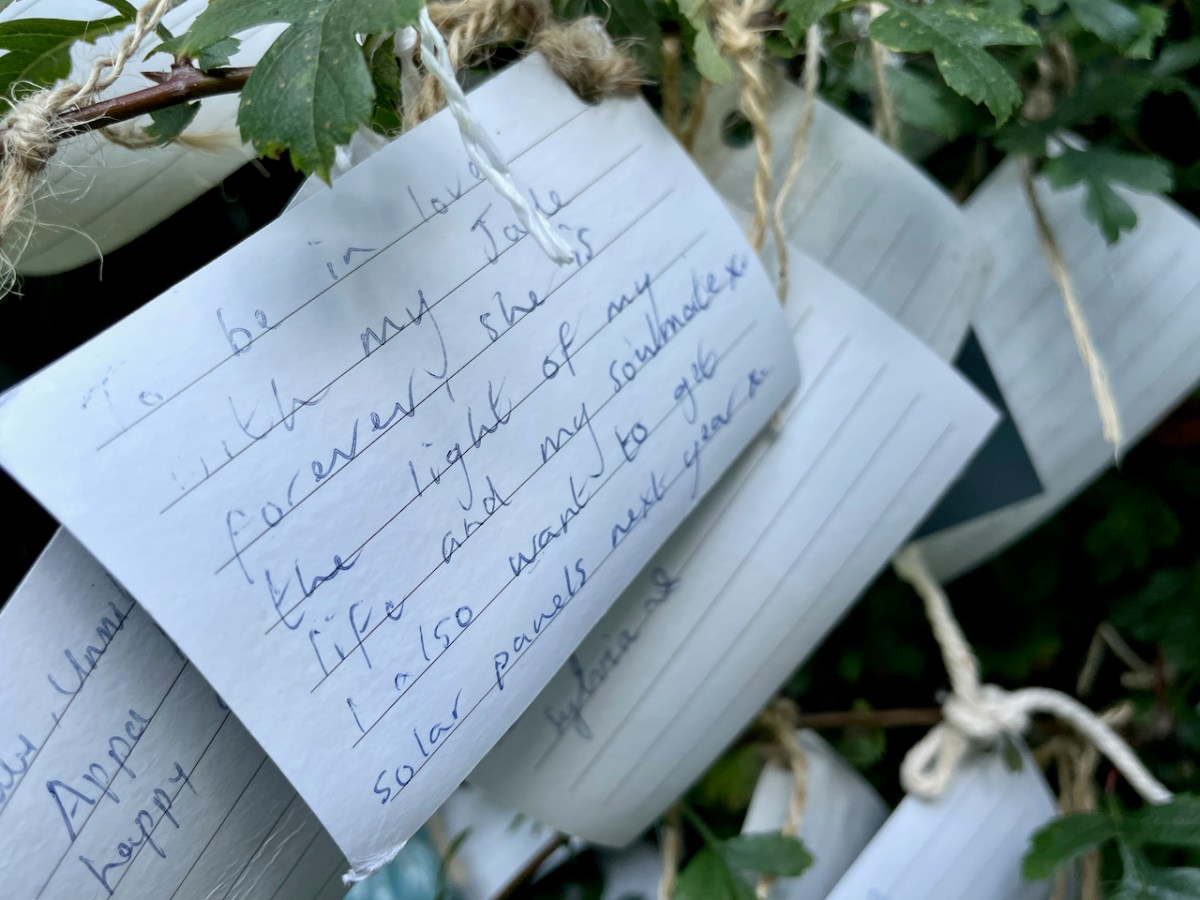 To be in love
with my Jade
forever, she is
the light of my
life and my soulmate xx
I also want to get
solar panels next year x.
Appa
happy
sylvia at